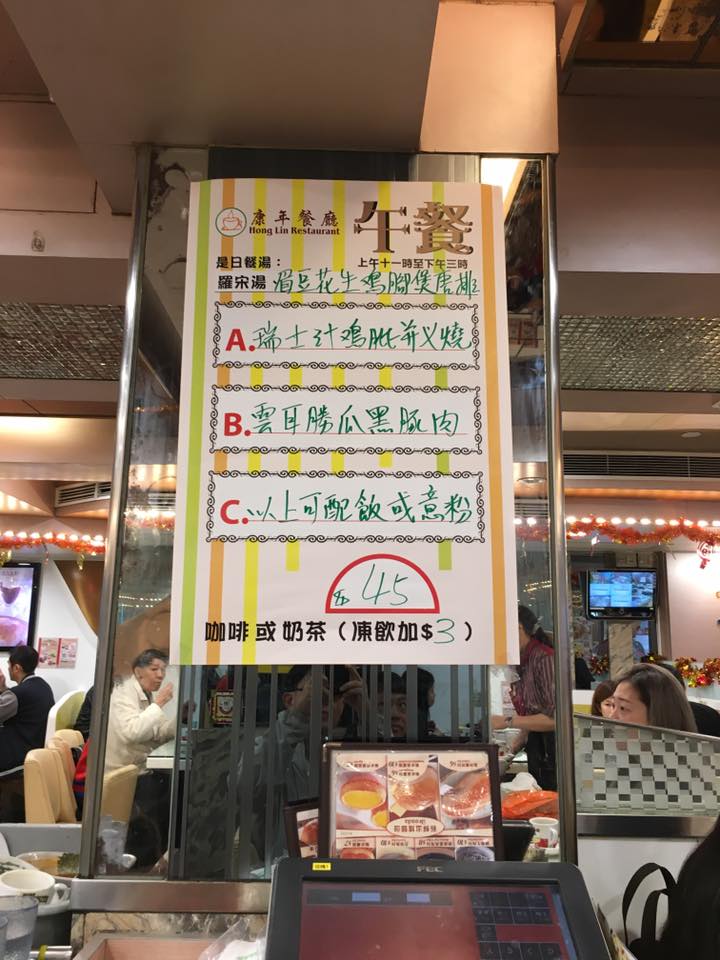 康年餐廳
Hong Lin Restaurant
午餐
是日餐湯：
上午十一時至下午三時
羅宋湯 眉豆花生鸡腳煲唐排
A. 瑞士汁鸡肶并义燒
B. 雲耳勝瓜黑豚肉
C. 以上可配飯或意粉
45
咖啡或奶茶（凍飲加$3）
FEC